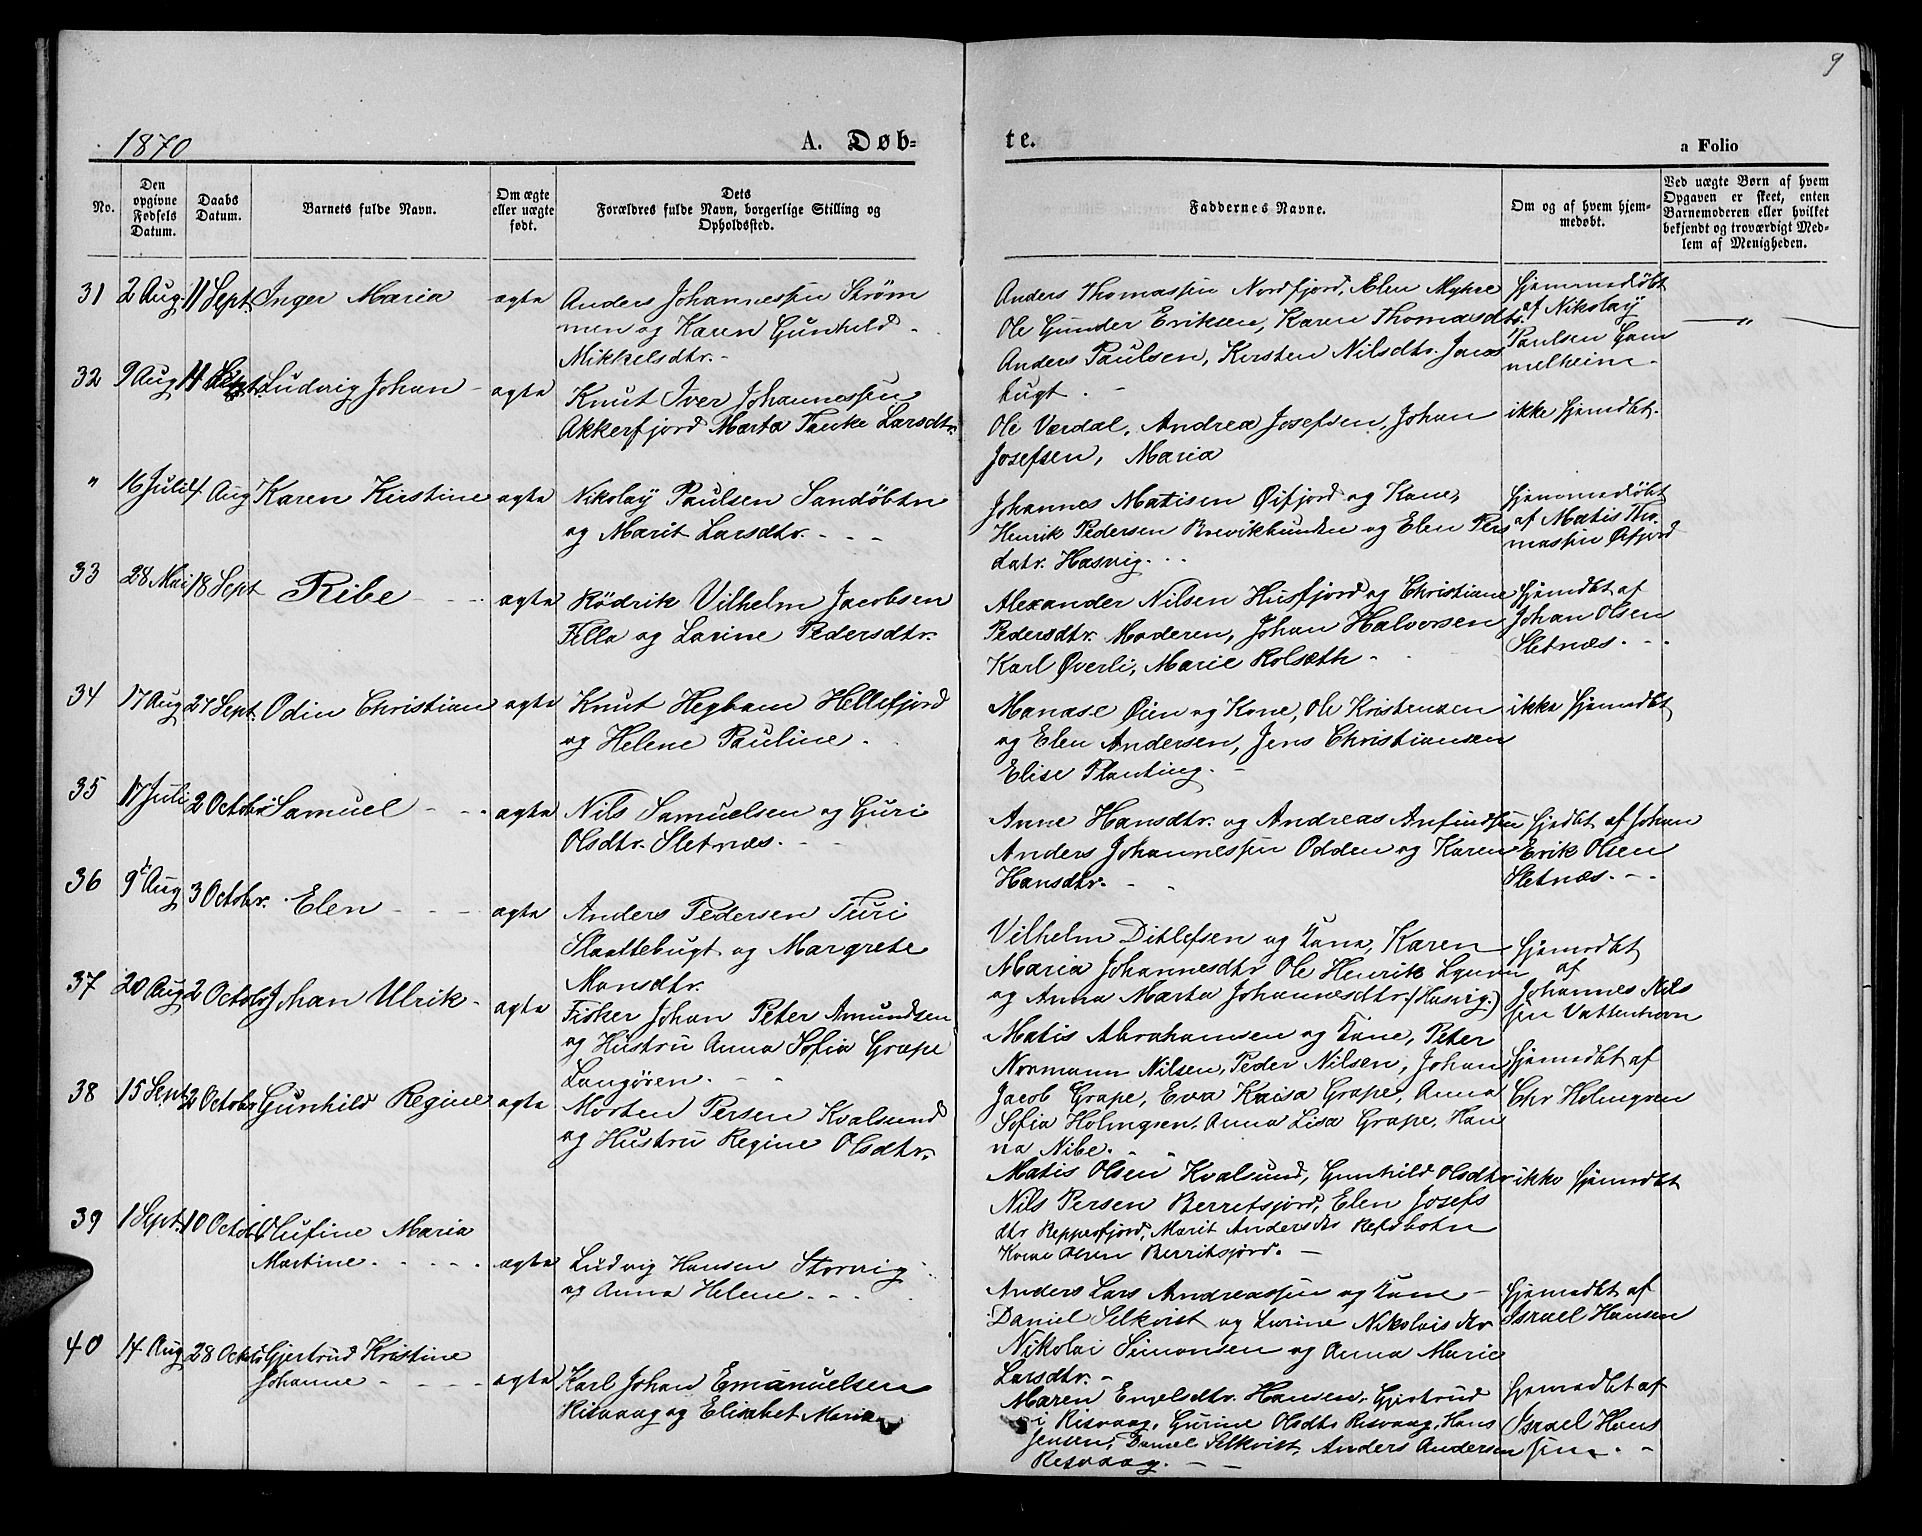 9
1870
A. Døb-
te.
a Folio
No.
Den opgivne Fødsels Datum.
Daabs Datum.
Barnets fulde Navn.
Om ægte eller uægte født.
Dets Forældres fulde Navn, borgerlige Stilling og Opholdssted.
Faddernes Navne.
Om og af hvem hjem-
medøbt.
Ved uægte Børn af hvem
Opgaven er skeet, enten
Barnemoderen eller hvilket
bekjendt og troværdigt Med-
lem af Menigheden.
31 2 Aug. 11 Sept. Inger Maria ægte Anders Johannessen Strøm
men og Karen Gunhild
Mikkelsdtr.
Anders Thomassen Nordfjord, Elen Myhre
Ole Gunder Eriksen, Karen Thomasdtr.
Anders Paulsen, Kirsten Nilsdtr. Jans
bugt.
Hjemmedøbt
af Nikolaÿ
Paulsen Gam
melheim.
"
32 9 Aug 11 Sept. Ludvig Johan ægte Knut Iver Johannessen
Akkerfjord Marta Tanke Larsdtr.
Ole Værdal, Andrea Josefsen, Johan
Josefsen, Maria
ikke Hjemdbt.
" 16 Juli 4 Aug Karen Kirstine ægte Nikolaÿ Paulsen Sandøbtn
og Marit Larsdtr.
Johannes Matisen Øifjord og Kone,
Henrik Pedersen Brevikbunden og Elen Pers
datr. Hasvig.
Hjemmedøbt
af Matis Tho-
massen Øifjord
33 28 Mai 18 Sept Ribe ægte Rödrik Vilhelm Jacobsen
Filla og Larine Pedersdtr.
Alexander Nilsen Husfjord og Christiane
Pedersdtr. Moderen, Johan Halvorsen
Karl Øverli, Marie Rolseth
Hjemdbt af
Johan Olsen
Sletnæs.
34 17 Aug 27 Sept. Odin Christian ægte Knut Hegbom Hellefjord
og Helene Pauline.
Manase Øien og Kone, Ole Kristensen
og Elen Andersen, Jens Christiansen
Elise Planting.
ikke Hjemdbt
35 17 Juli 2 Octobr Samuel ægte Nils Samuelsen og Guri
Olsdtr. Sletnæs.
Anne Hansdtr. og Andreas Anfindsen
Anders Johannessen Odden og Karen
Hansdtr.
Hjedbt af Johan
Erik Olsen
Sletnæs.
36 9 Aug 3 Octobr. Elen ægte Anders Pedersen Turi
Slaattebugt og Margrete
Monsdtr.
Vilhelm Ditlefsen og Kone, Karen
Maria Johannesdtr Ole Henrik
og Anna Marta Johannesdtr. (Hasvig.)
Hjemdbt
af
Johannes Nils
sen
37 20 Aug 2 Octobr Johan Ulrik ægte Fisker Johan Peter Amundsen
og Hustru Anna Sofia Grape
Langören.
Matis Abrahamsen og Kone, Peter
Normann Nilsen, Peder Nilsen, Johan
Jacob Grape, Eva Kaisa Grape, Anna
Sofia Holmgren, Anna Lisa Grape, Han
na Nibe.
Hjemdbt af
Chr Holmgren
38 15 Sept 2 Octobr Gunhild Regine ægte Morten Persen Kvalsund
og Hustru Regine Olsdtr.
Matis Olsen Kvalsund, Gunhild Olsdtr
Nils Persen Berretsfjord, Elen Josefs
dtr Repperfjord, Marit Andersdtr Refsbotn
Olsen Berritsfjord.
ikke Hjemdbt
39 1 Sept. 10 Octobr Olufine Maria
Martine. ægte Ludvig Hansen Storvig
og Anna Helene.
Anders Lars Andreassen og Kone
Daniel Selkvist og Larine Nikolaisdtr
Nikolai Simonsen og Anna Marie
Larsdtr.
Hjemdbt af
Israel Hansen
40 14 Aug 28 Octobr Gjertrud Kristine
Johanne ægte Karl Johan Emanuelsen
Risvaag og Elisabet Maria
Maren Engeldtr. Hansen, Gjertrud
i Risvaag, Gurine Olsdtr Risvaag, Hans
Jensen, Daniel Selkvist, Anders Andersen
Risvaag.
Hjemdbt af
Israel Hans
sen